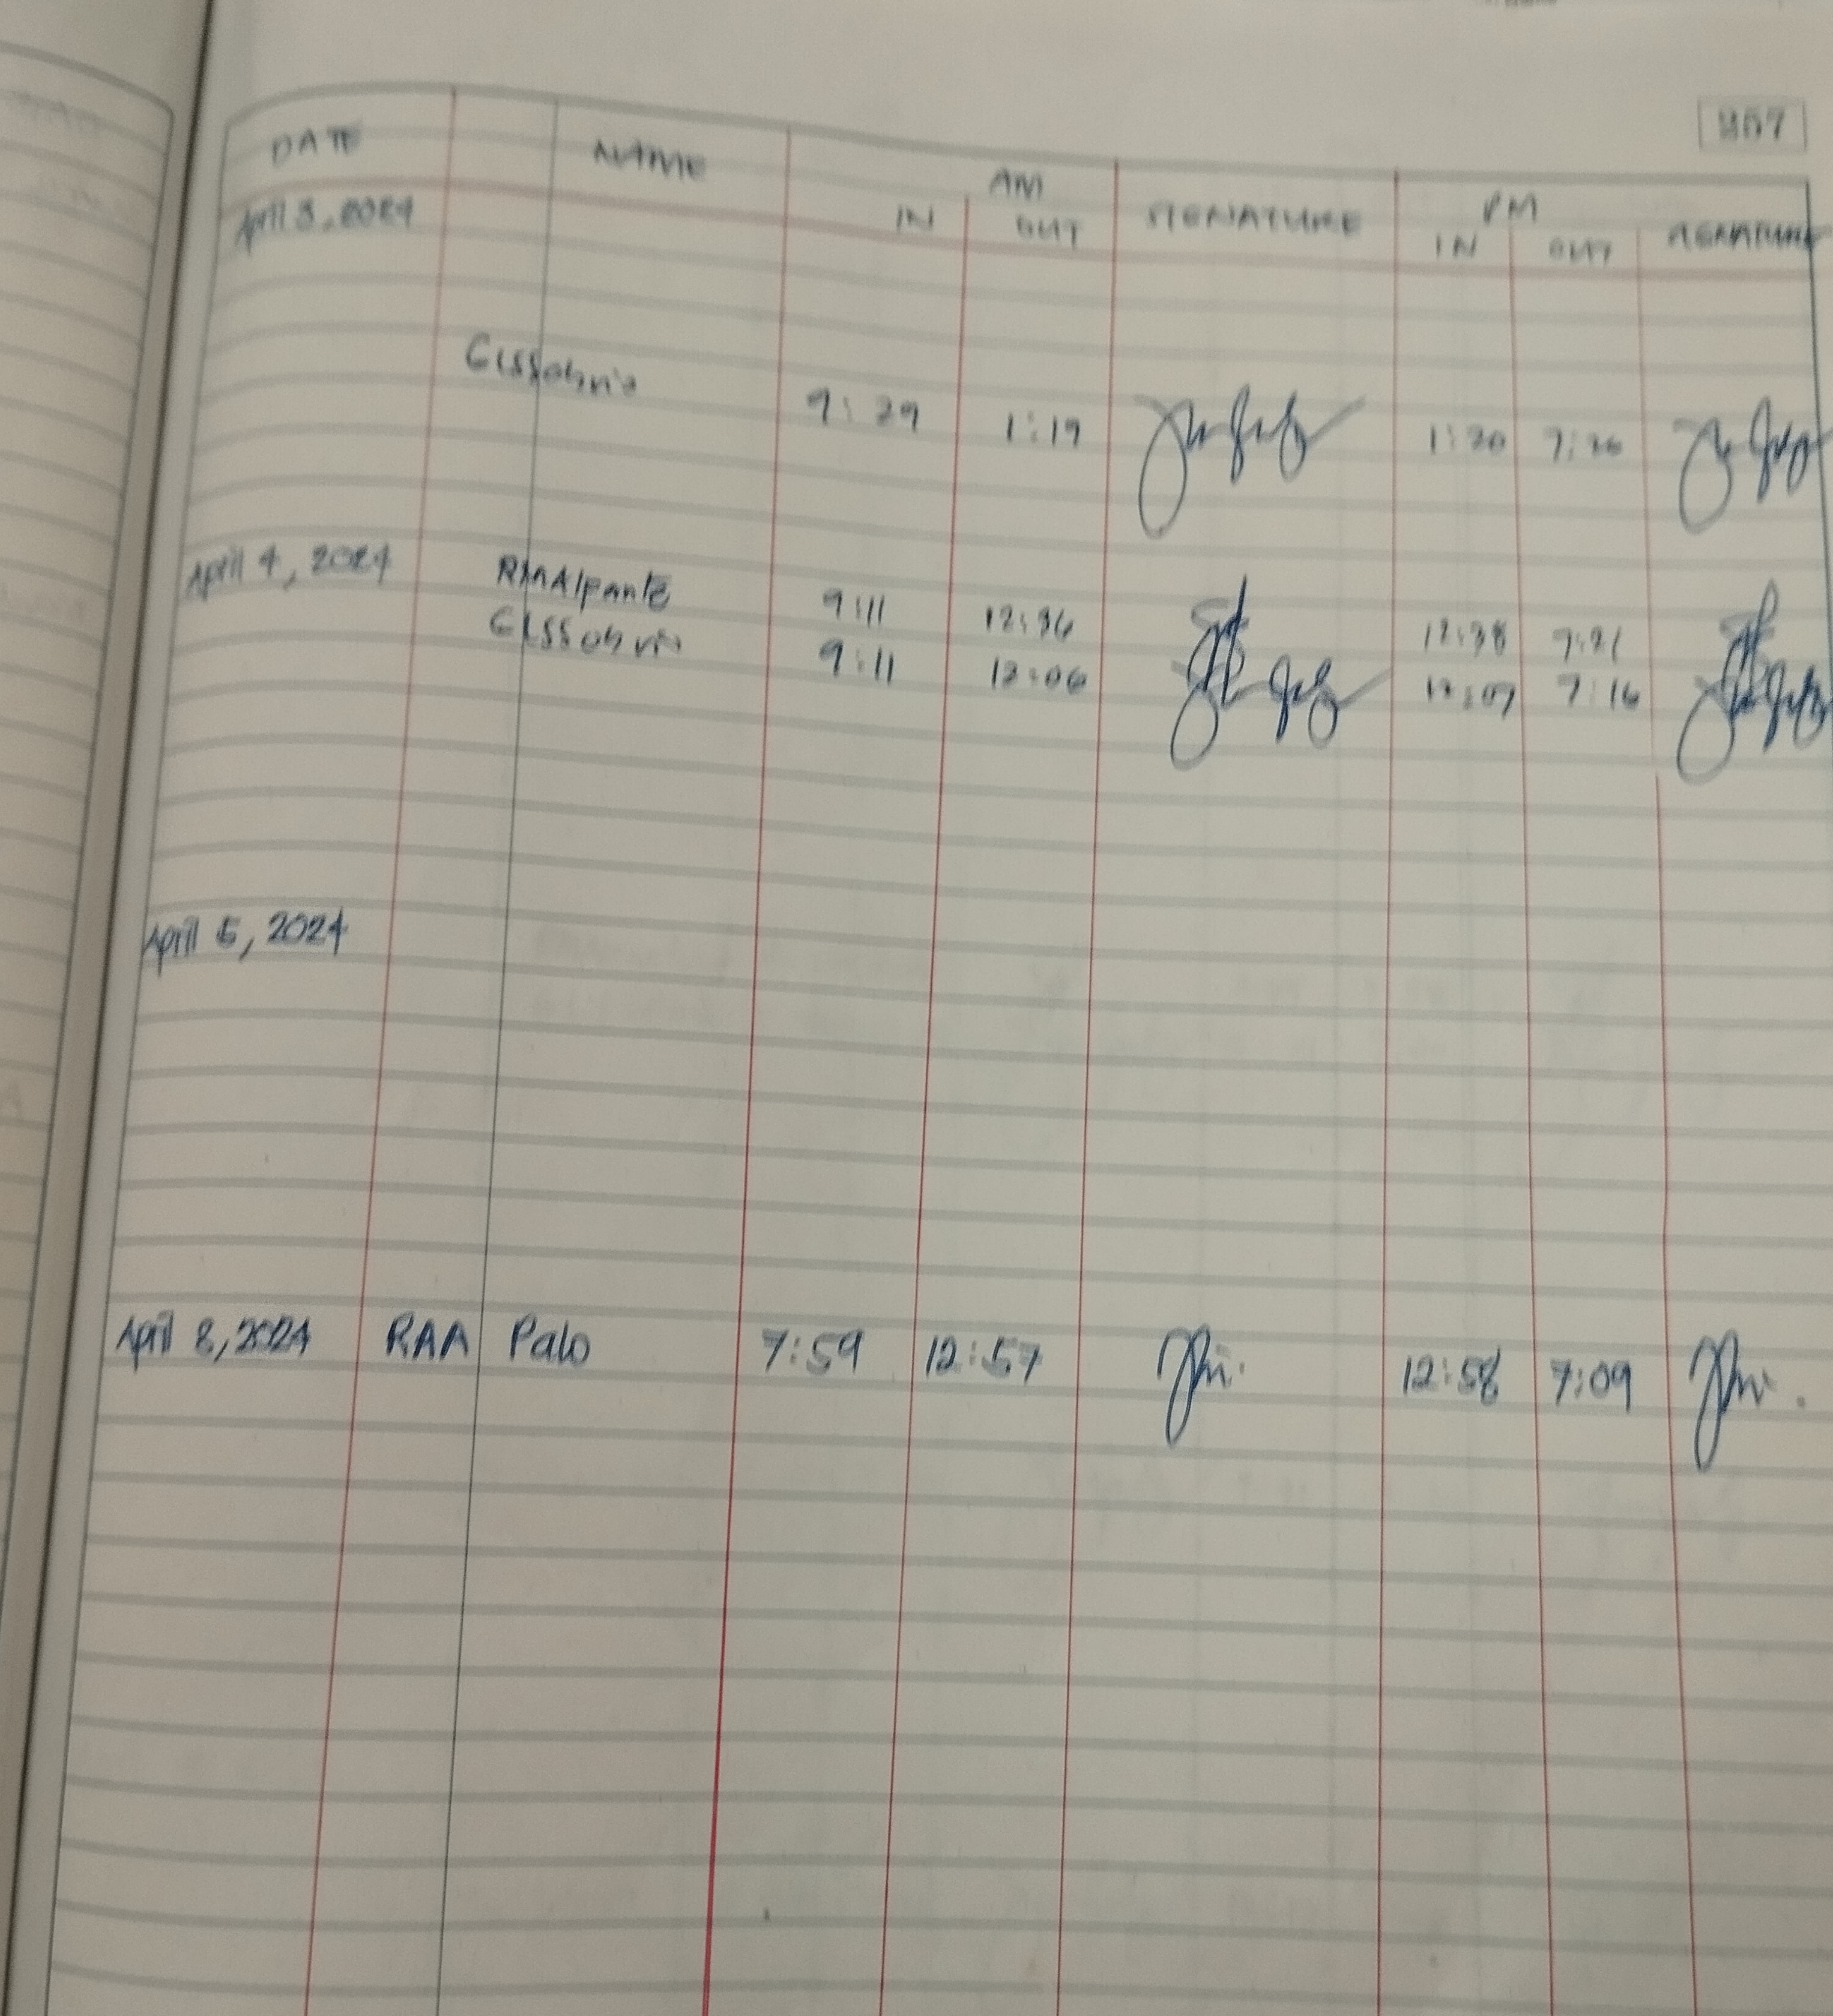 257
DATE NAME AM SIGNATURE PM SIGNATURE
IN OUT IN OUT
April 3, 2024
9:29 1:19 1:20
April 4, 2024 RMAlpante 9:11 12:36 12:38 7:21
9:11 12:06 12:07 7:16
April 5, 2024
April 8, 2024 RAA Palo 7:59 12:57 12:58 7:09